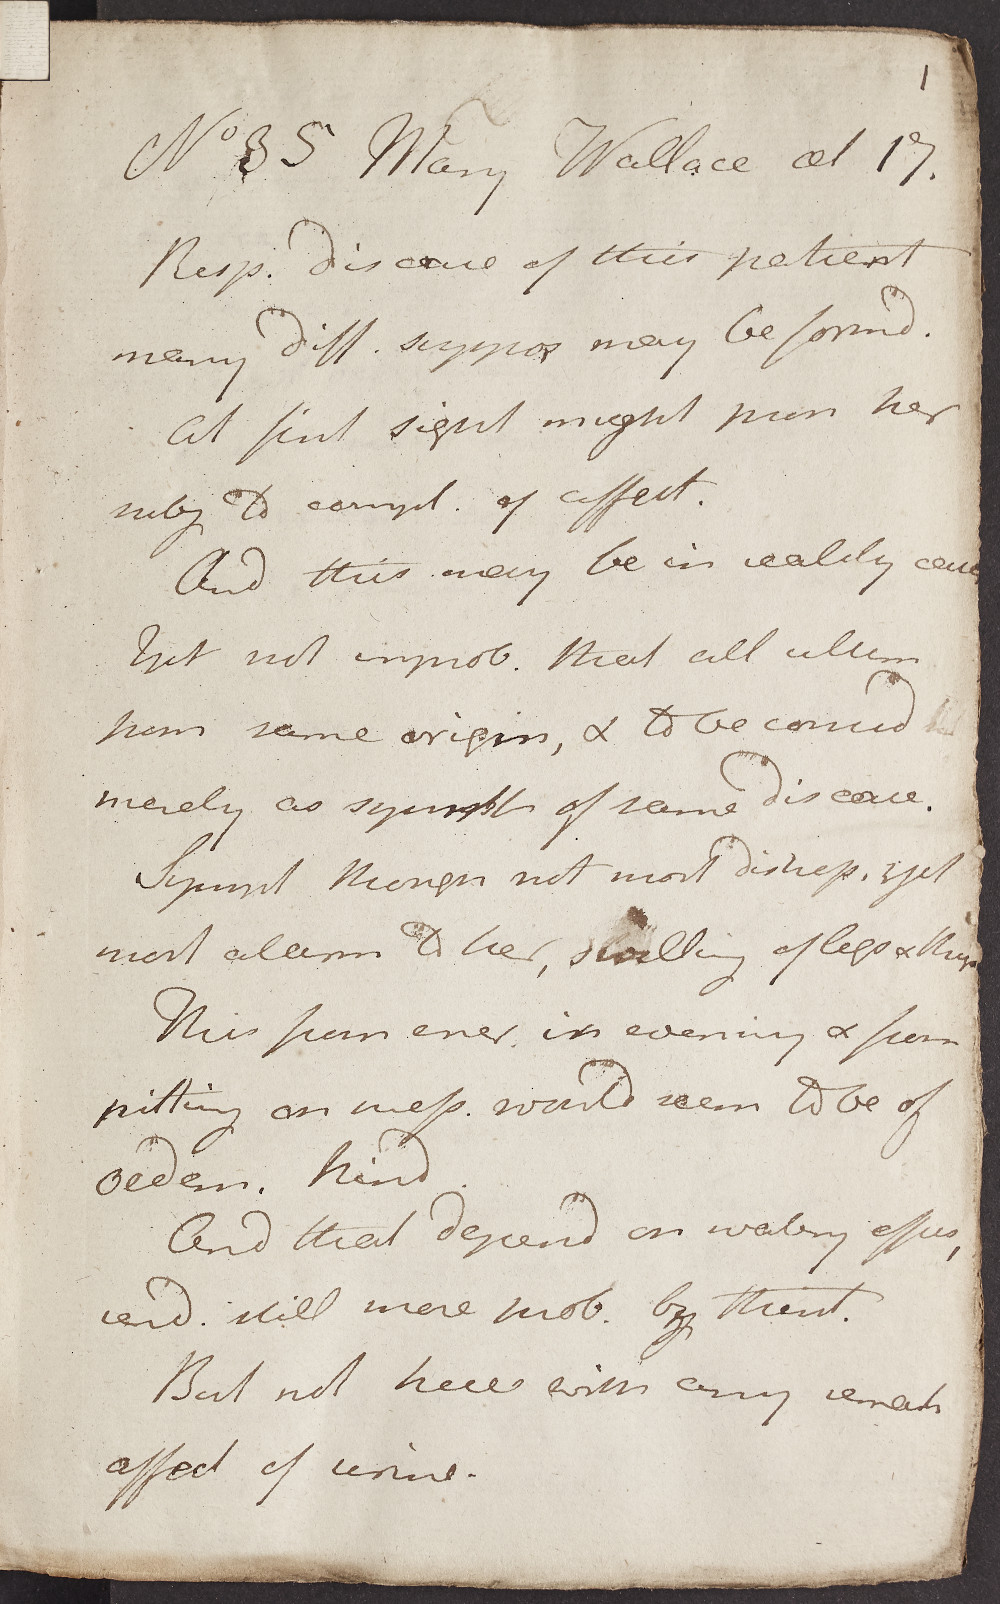 1
No 35 Mary Wallace æt 17.
Resp. disease of this patient
many diff. suppos may be formd.
At first sight might pron her
subj to compl. of affect.
And this may be in reality case
Yet not improb. that all ultim
from same origin, & to be consid
merely as sympt of same disease.
Sympt though not most distress. yet
most alarm to her, swelling of legs & thigs
This from encr. in evening & from
pitting on press. would seem to be of
oedem. kind.
And that depend on watery effus,
rend. still more prob. by thirst.
But not here with any remark
affect of urine.